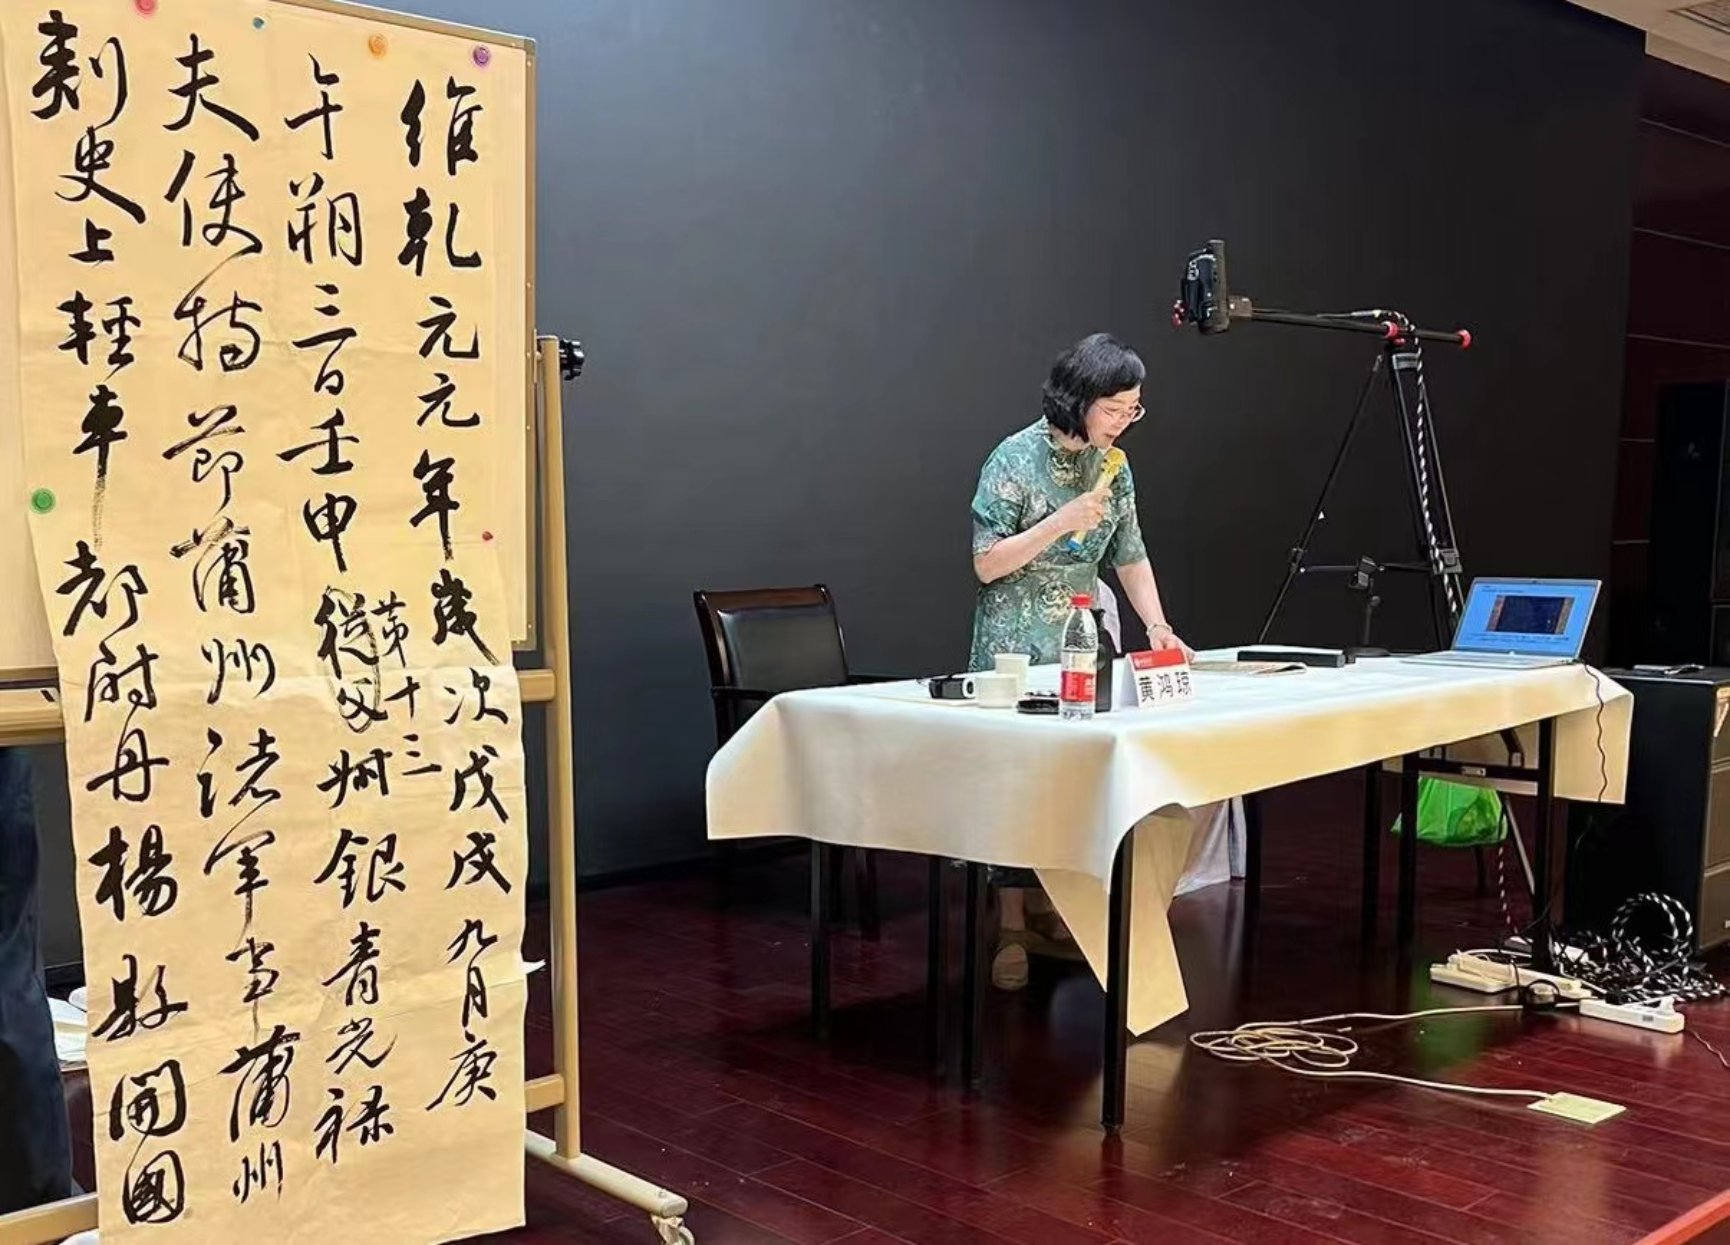 維乾元元年歲次戊戌九月庚
午朔三日壬申第十三從父㓝銀青光禄
夫使持節蒲州諸軍事蒲州
刺史上輕車都尉丹楊縣開國
黄鸿琼